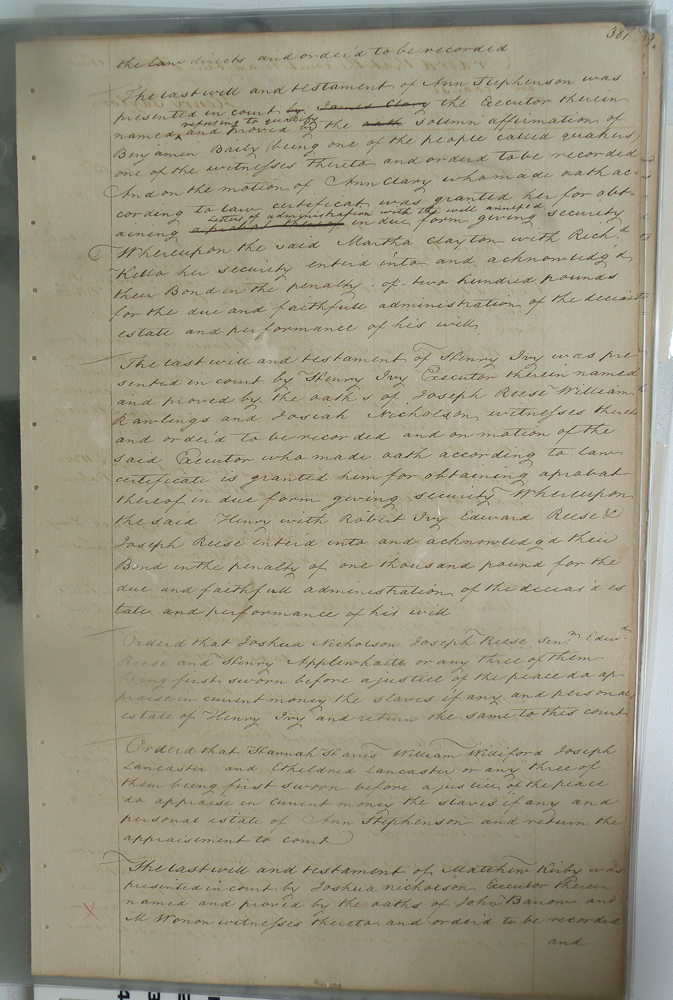 381
the law directs and order'd to be recorded
The last will and testament of Ann Stephenson was
presented in court by James Clary the Executor therein
refusing to qualify
named and proved by the oath solemn affirmation of
Benjamin Baily (being one of the people called quakers)
one of the witnesses thereto and order'd to be recorded
And on the motion of Ann Clary who made oath ac-
cording to law certificat was granted her for obt-
Letters of administration with the will annexed
aining a probat thereof in due form giving security
Whereupon the said Martha Clayton with Richd.
Kello her security enter'd into and acknowledg'd
their Bond in the penalty of two hundred pounds
for the due and faithfull administration of the deceas'd
estate and performance of his will.
The last will and testament of Henry Ivy was pre
sented in court by Henry Ivy Executor therein named
and proved by the oath s of Joseph Reese William
Rawlings and Josiah Nicholson witnesses thereto
and order'd to be recorded and on motion of the
said Executor who made oath according to law
certificate is granted him for obtaining a probat
thereof in due form giving security Whereupon
the said Henry with Robert Ivy Edward Reese &
Joseph Reese enter'd into and acknowledg'd their
Bond in the penalty of one thousand pound for the
due and faithfull administration of the deceas'd es
tate and performance of his will
Order'd that Joshua Nicholson Joseph Reese senr. Edwd.
Reese and Henry Applewhaite or any three of them
being first sworn before a justice of the peace do ap-
praise in current money the slaves if any and personal
estate of Henry Ivy and return the same to this court
Order'd that Hannah William Williford Joseph
Lancaster and Etheldred Lancaster or any three of
them being first sworn before a justice of the peace
do appraise in current money the slaves if any and
personal estate of Ann Stephenson and return the
appraisement to court
The last will and testament of Matthew Kirby was
presented in court by Joshua Nicholson Executor therein
named and proved by the oaths of John Barrow and
M witnesses thereto and order'd to be recorded
and